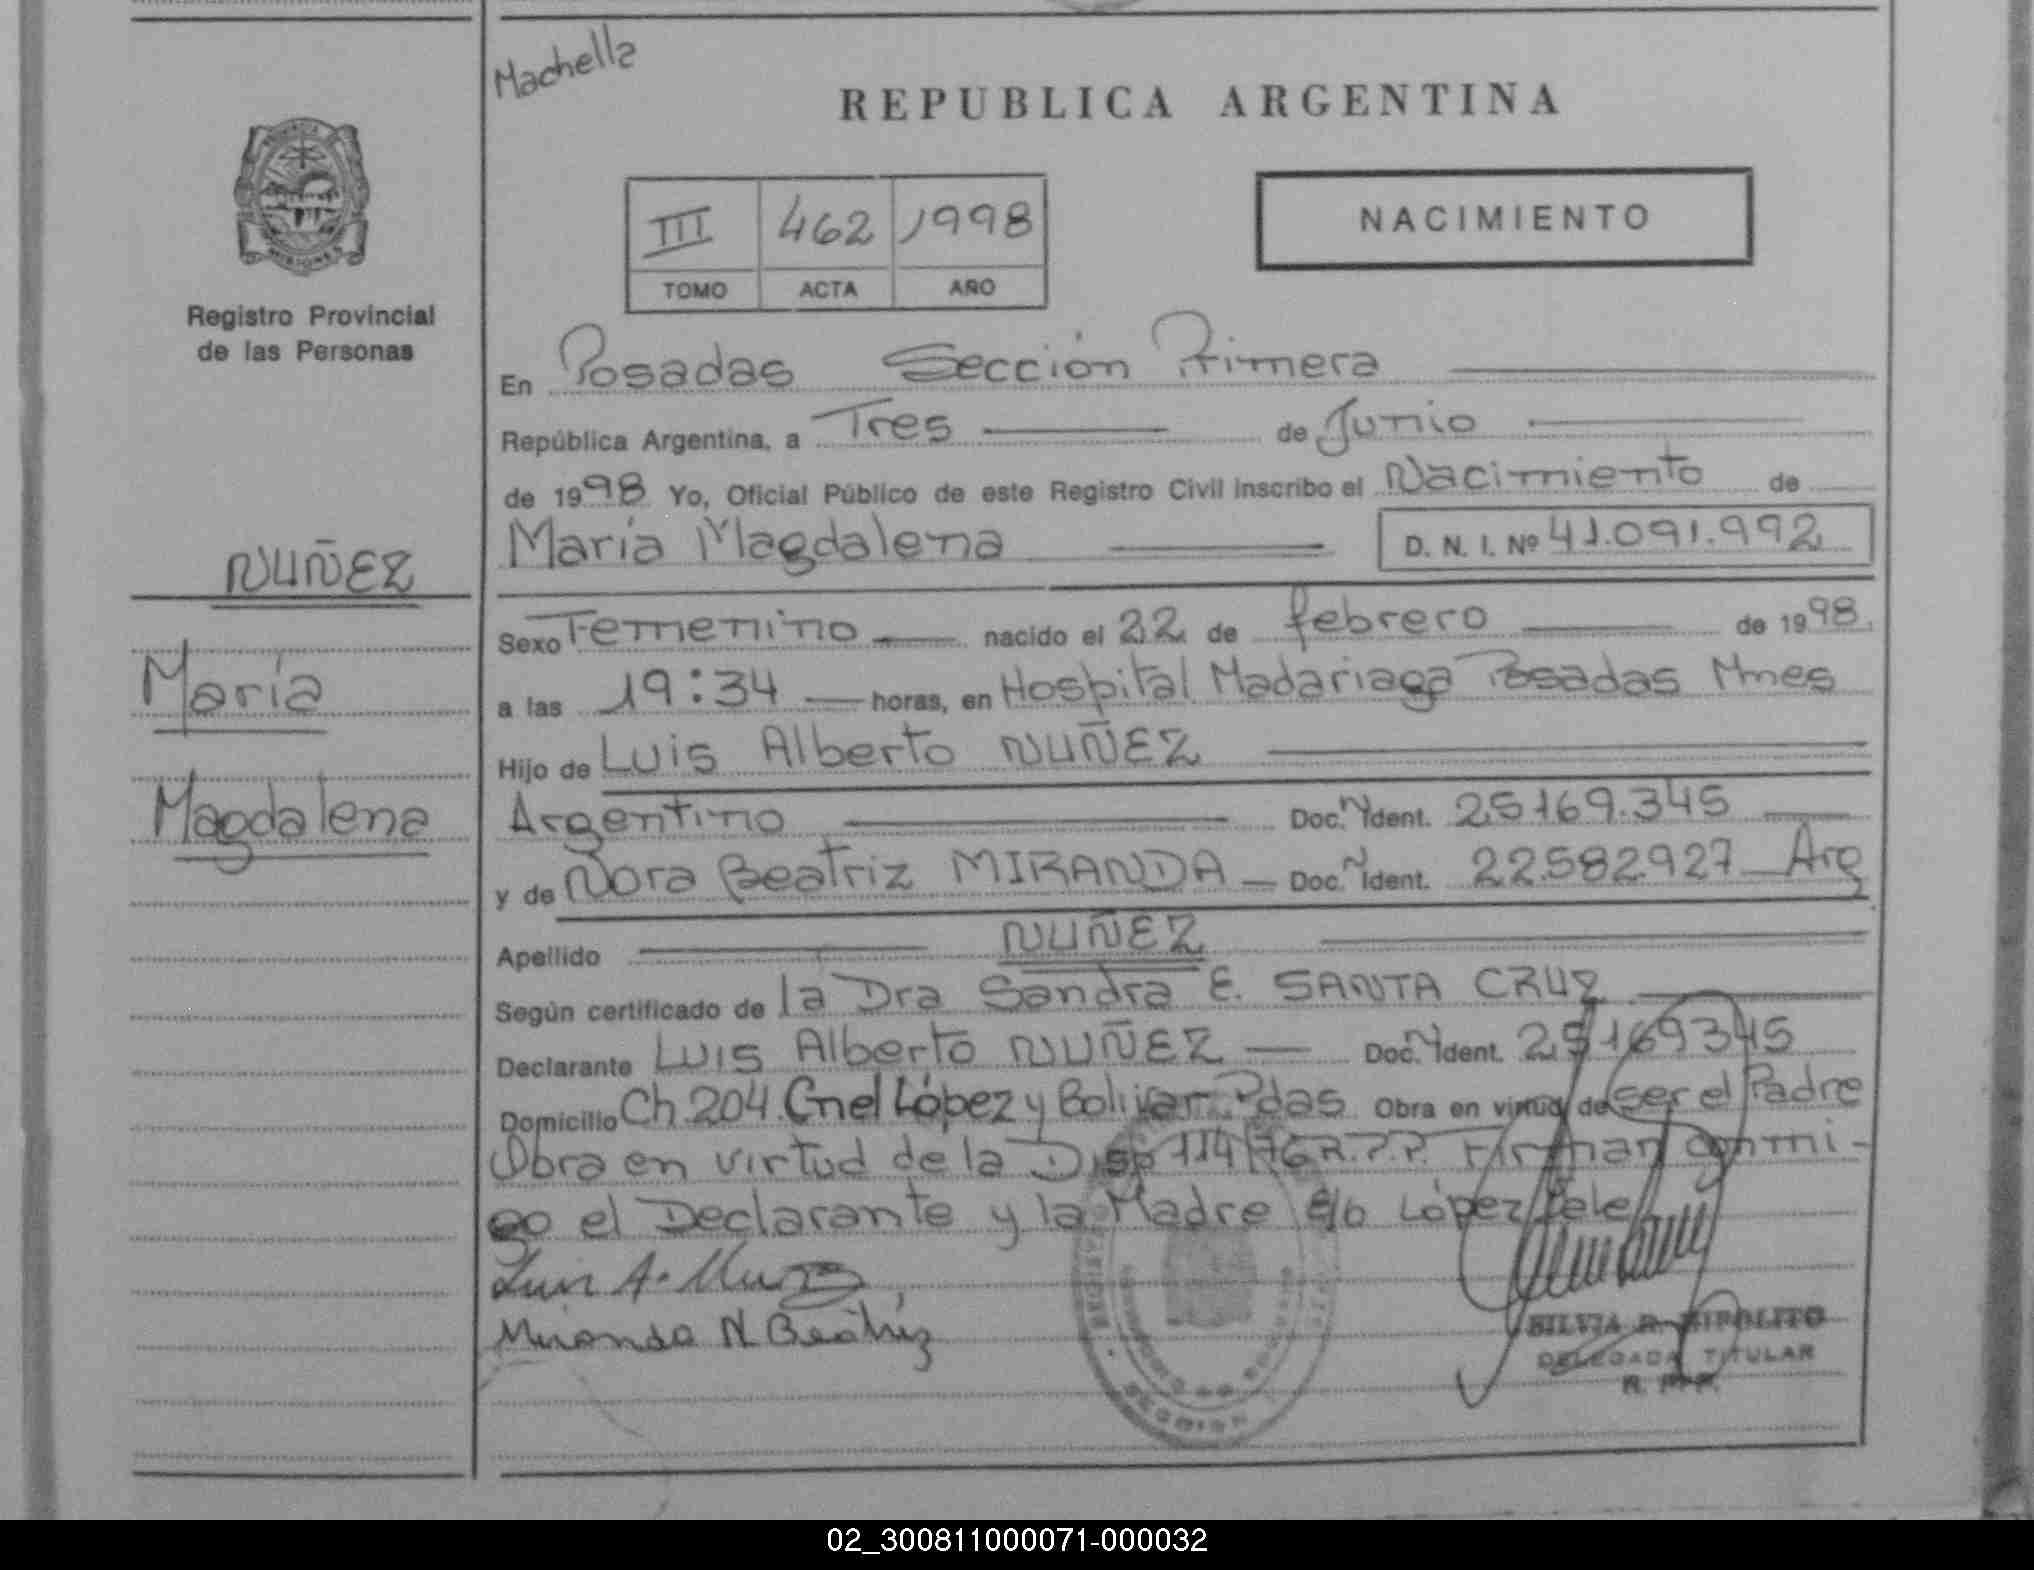 Machella
REPUBLICA ARGENTINA
III 462 1998
TOMO ACTA AÑO
NACIMIENTO
Registro Provincial
de las Personas
En Posadas Sección Primera
República Argentina, a Tres de Junio
de 1998 Yo, Oficial Público de este Registro Civil inscribo el Nacimiento de
María Magdalena D. N. I. Nº 41.091.992
NUÑEZ
María
Magdalena
Sexo Femenino nacido el 22 de febrero de 1998
a las 19:34 horas, en Hospital Madariaga Posadas Mnes
Hijo de Luis Alberto NUÑEZ
Argentino Doc. Ident. 25169.345
y de Nora Beatriz MIRANDA Doc. Ident. 22.582.927 Arg
Apellido NUÑEZ
Según certificado de la Dra Sandra E. SANTA CRUZ
Declarante Luis Alberto NUÑEZ Doc. Ident. 25169345
Domicilio Ch. 204 Cnel López y Bolivar Pdas Obra en virtud de ser el Padre
Obra en virtud de la Disp 114/76 R.P.P. Firman conmi-
go el Declarante y la Madre E/b López
Luis A. Nuñez
Miranda N Beatriz
SILVIA R. HIPOLITO
DELEGADA TITULAR
R. P. P.
02_300811000071-000032